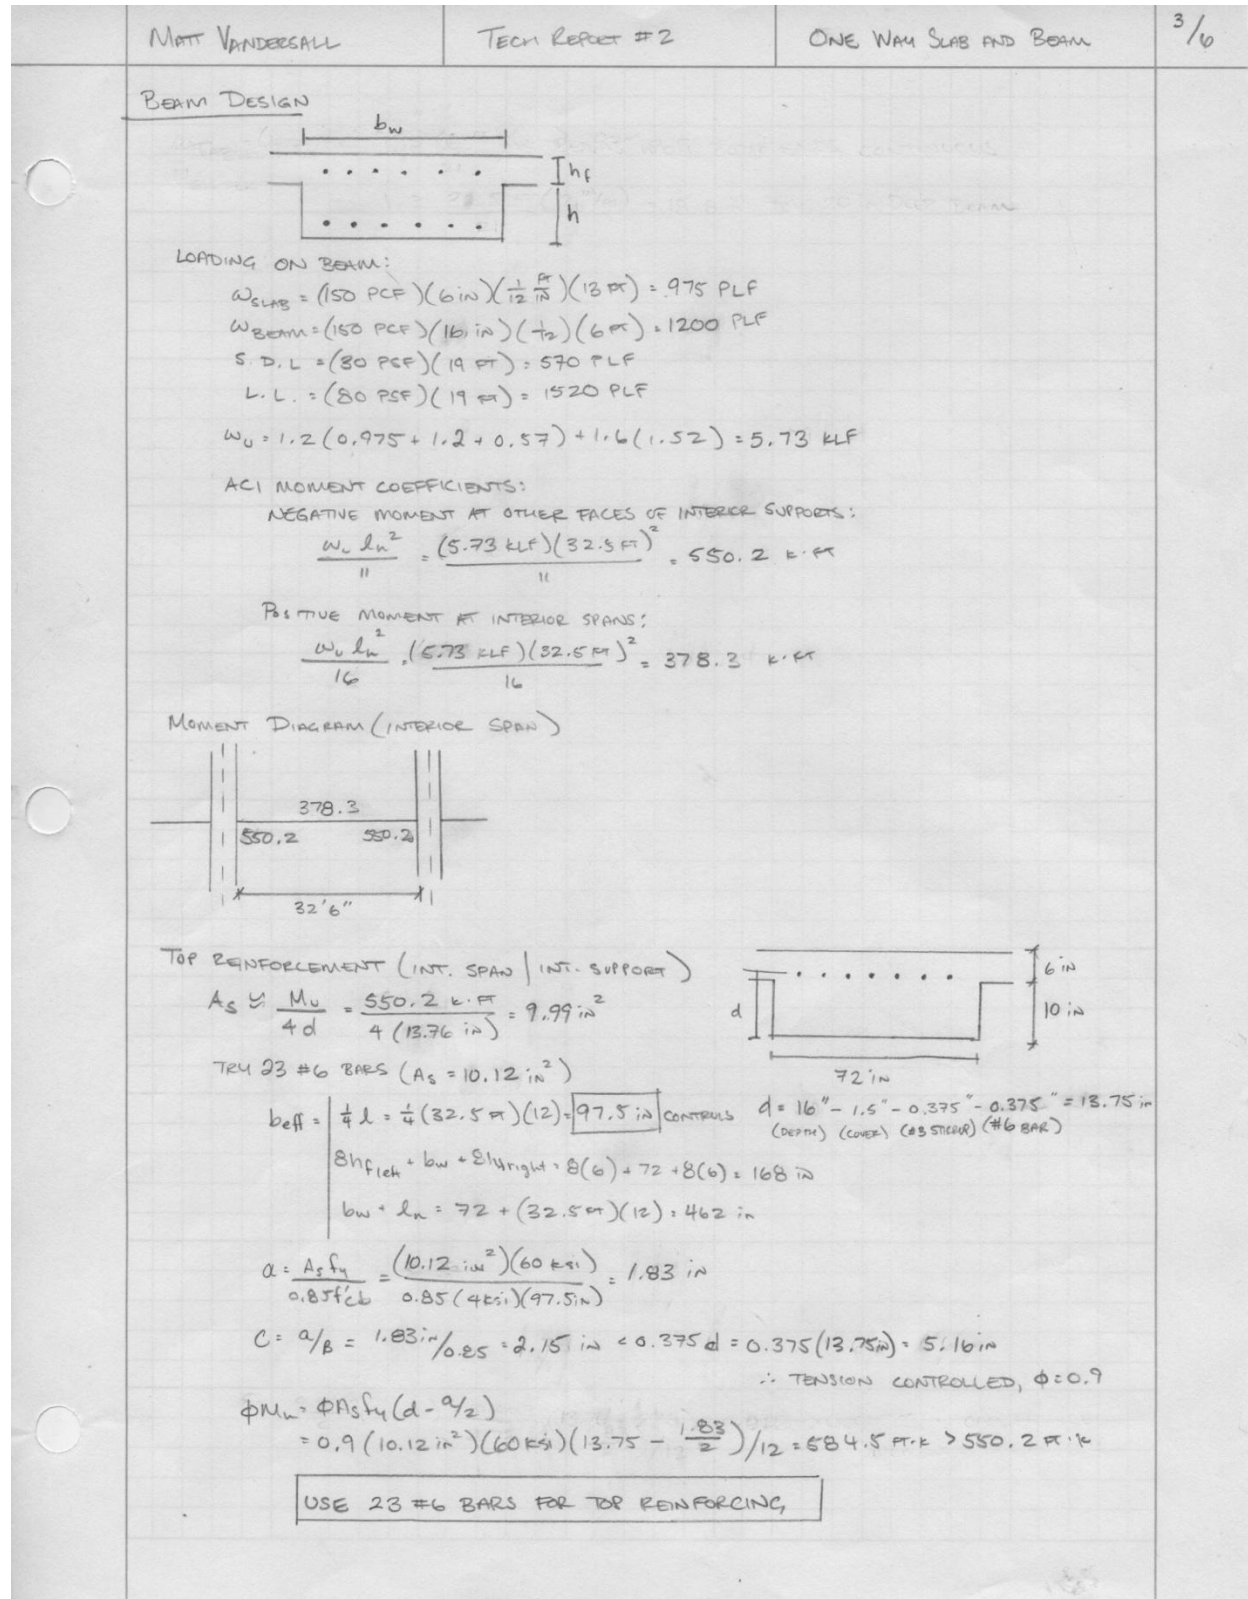 MATT VANDERSALL
TECH REPORT #2
ONE WAY SLAB AND BEAM
3/6
BEAM DESIGN
bw
hf
h
LOADING ON BEAM:
ωSLAB = (150 PCF)(6 in)(1/12 FT/IN)(13 FT) = 975 PLF
ωBEAM = (150 PCF)(16 in)(1/12)(6 FT) = 1200 PLF
S.D.L = (30 PSF)(19 FT) = 570 PLF
L.L. = (80 PSF)(19 FT) = 1520 PLF
ωu = 1.2(0.975 + 1.2 + 0.57) + 1.6(1.52) = 5.73 KLF
ACI MOMENT COEFFICIENTS:
NEGATIVE MOMENT AT OTHER FACES OF INTERIOR SUPPORTS:
ωu ln²/11 = (5.73 KLF)(32.5 FT)²/11 = 550.2 K·FT
POSITIVE MOMENT AT INTERIOR SPANS:
ωu ln²/16 = (5.73 KLF)(32.5 FT)²/16 = 378.3 K·FT
MOMENT DIAGRAM (INTERIOR SPAN)
378.3
550.2 550.2
32'6"
TOP REINFORCEMENT (INT. SPAN | INT. SUPPORT)
As ≅ Mu/4d = 550.2 K·FT/4(13.76 in) = 9.99 in²
d
6 IN
10 IN
72 IN
TRY 23 #6 BARS (As = 10.12 in²)
beff = | 1/4 l = 1/4 (32.5 FT)(12) = 97.5 in CONTROLS
d = 16" - 1.5" - 0.375" - 0.375" = 13.75 in
(DEPTH) (COVER) (#3 STIRRUP) (#6 BAR)
8hfleft + bw + 8hfright = 8(6) + 72 + 8(6) = 168 in
bw + ln = 72 + (32.5 FT)(12) = 462 in
a = As fy/0.85f'cb = (10.12 in²)(60 ksi)/0.85(4ksi)(97.5in) = 1.83 in
C = a/β = 1.83in/0.85 = 2.15 in < 0.375d = 0.375(13.75in) = 5.16in
∴ TENSION CONTROLLED, φ = 0.9
φMn = φAsfy(d - a/2)
= 0.9(10.12 in²)(60 ksi)(13.75 - 1.83/2)/12 = 584.5 FT·K > 550.2 FT·K
USE 23 #6 BARS FOR TOP REINFORCING